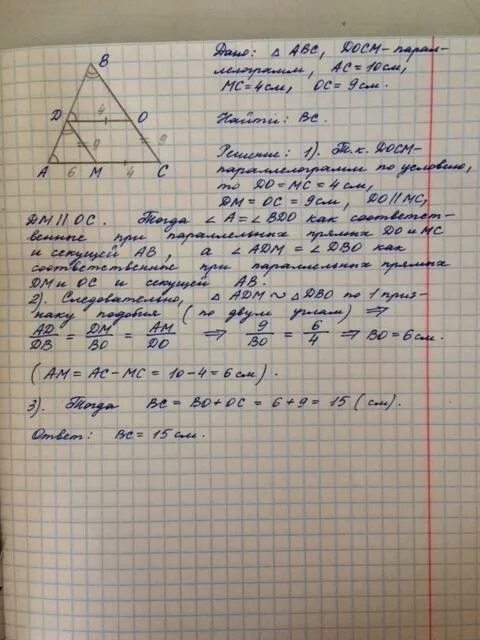 Дано: △ ABC, DOCM-парал-
лелограмм, AC=10см,
MC=4см, OC=9см.
Найти: BC.
Решение: 1). Т.к. DOCM-
параллелограмм по условию,
то DO=MC=4см,
DM=OC=9см, DO∥MC,
DM∥OC. Тогда ∠A=∠BDO как соответст-
венные при параллельных прямых DO и MC
и секущей AB, а ∠ADM=∠DBO как
соответственные при параллельных прямых
DM и OC и секущей AB.
2). Следовательно, △ADM∼△DBO по 1 приз-
наку подобия (по двум углам) ⇒
AD/DB = DM/BO = AM/DO ⇒ 9/BO = 6/4 ⇒ BO=6см.
(AM=AC-MC=10-4=6см).
3). Тогда BC=BO+OC=6+9=15(см).
Ответ: BC=15см.
B
D
4
O
9
9
A
6
M
4
C